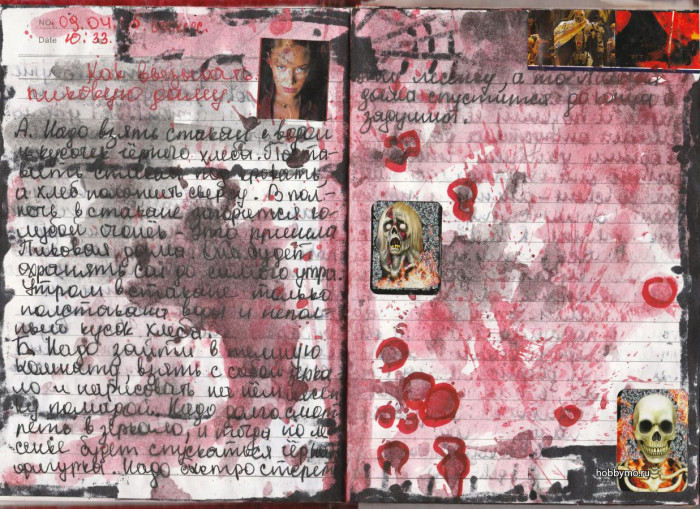 No: 03.04
Date 10:33.
Как вызывать
пиковую даму
А. Надо взять стакан с водой
и кусочек чёрного хлеба. Поста-
вить стакан под кровать,
а хлеб положить сверху. В пол-
ночь в стакане загорется го-
лубой огонёк - это пришла
Пиковая дама. Она будет
охранять сон до самого утра.
Утром в стакане только
полстакана воды и непол-
ный кусок хлеба.
Б. Надо зайти в тёмную
комнату, взять с собой зерка-
ло и нарисовать на нём лесен-
ку помадой. Надо долго смот-
реть в зеркало, и тогда по ле-
сенке будет спускаться чёрная
фигурка. Надо быстро стереть
эту лесенку, а то Пиковая
дама спустится до конца и
задушит.
hobbymo.ru